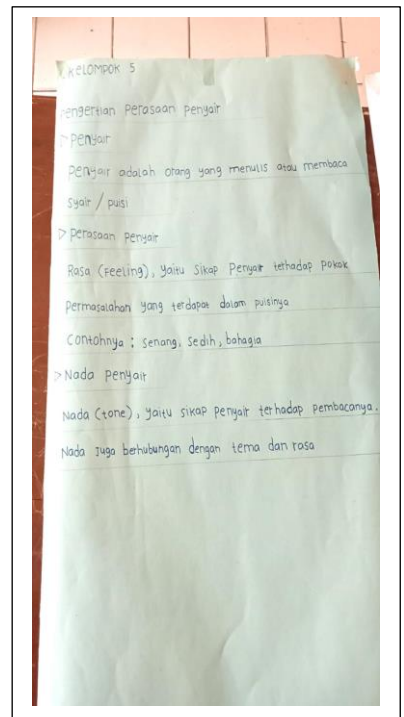 KELOMPOK 5
Pengertian Perasaan Penyair
> Penyair
Penyair adalah orang yang menulis atau membaca
Syair / puisi
> Perasaan Penyair
Rasa (Feeling), yaitu Sikap Penyair terhadap Pokok
Permasalahan yang terdapat dalam puisinya
Contohnya : Senang, Sedih, bahagia
> Nada Penyair
Nada (tone), yaitu sikap Penyair terhadap Pembacanya.
Nada Juga berhubungan dengan tema dan rasa